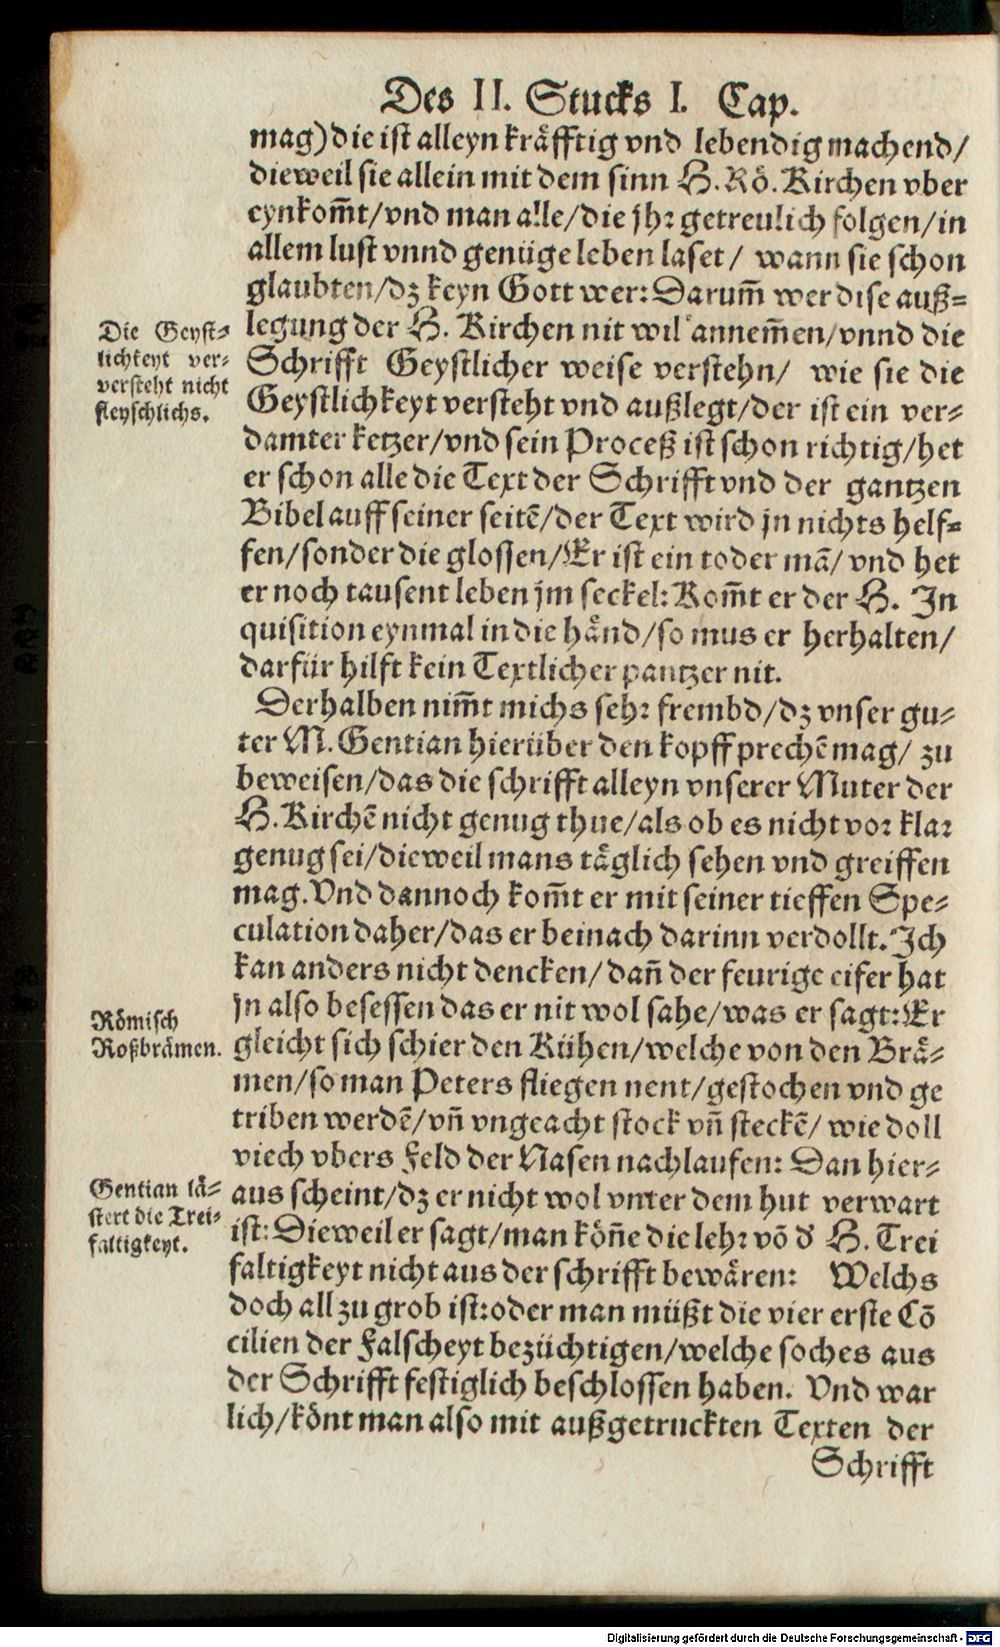 Des II. Stucks I. Cap.
mag) die ist alleyn kräfftig vnd lebendig machend/
dieweil sie allein mit dem sinn H. Rö. Kirchen vber
eynkom̃t/vnd man alle/die jhr getreulich folgen/in
allem lust vnnd genüge leben laset/ wann sie schon
glaubten/dz keyn Gott wer: Darum̃ wer dise auß=
legung der H. Kirchen nit wil annem̃en/vnnd die
Schrifft Geystlicher weise verstehn/ wie sie die
Geystlichkeyt versteht vnd außlegt/der ist ein ver=
damter ketzer/vnd sein Proceß ist schon richtig/het
er schon alle die Text der Schrifft vnd der gantzen
Bibel auff seiner seitẽ/der Text wird jn nichts helf=
fen/sonder die glossen/Er ist ein toder mã/ vnd het
er noch tausent leben jm seckel: Kom̃t er der H. In
quisition eynmal in die händ/so mus er herhalten/
darfür hilft kein Textlicher pantzer nit.
Derhalben nim̃t michs sehr frembd/dz vnser gu=
ter M. Gentian hierüber den kopff prechẽ mag/ zu
beweisen/das die schrifft alleyn vnserer Muter der
H. Kirchẽ nicht genug thue/als ob es nicht vor klar
genug sei/dieweil mans täglich sehen vnd greiffen
mag. Vnd dannoch kom̃t er mit seiner tieffen Spe=
culation daher/das er beinach darinn verdollt. Ich
kan anders nicht dencken/ dañ der feurige eifer hat
jn also besessen das er nit wol sahe/was er sagt: Er
gleicht sich schier den Kühen/welche von den Brä=
men/so man Peters fliegen nent/gestochen vnd ge
triben werdẽ/vñ vngeacht stock vñ steckẽ/ wie doll
viech vbers Feld der Nasen nachlaufen: Dan hier=
aus scheint/dz er nicht wol vnter dem hut verwart
ist: Dieweil er sagt/man kön̄e die lehr võ d' H. Trei
faltigkeyt nicht aus der schrifft bewären: Welchs
doch all zu grob ist: oder man müßt die vier erste Cõ
cilien der Falscheyt bezüchtigen/welche soches aus
der Schrifft festiglich beschlossen haben. Vnd war
lich/könt man also mit außgetruckten Texten der
Schrifft
Die Geyst=
lichkeyt ver=
versteht nicht
fleyschlichs.
Römisch
Roßbrämen.
Gentian lä=
stert die Trei=
faltigkeyt.
Digitalisierung gefördert durch die Deutsche Forschungsgemeinschaft - DFG